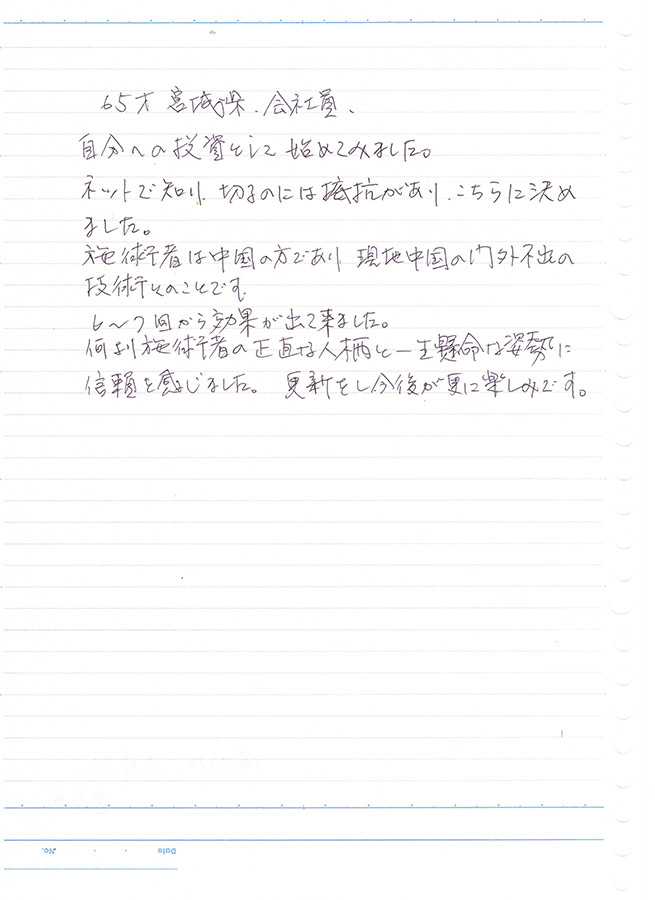 65才 宮城県、会社員、
自分への投資として始めてみました。
ネットで知り、切るのには抵抗があり、こちらに決め
ました。
施術者は中国の方であり 現地中国の門外不出の
技術とのことです。
6〜7回から効果が出て来ました。
何より施術者の正直な人柄と一生懸命な姿勢に
信頼を感じました。 更新をし今後が更に楽しみです。
Date ・ ・ No.